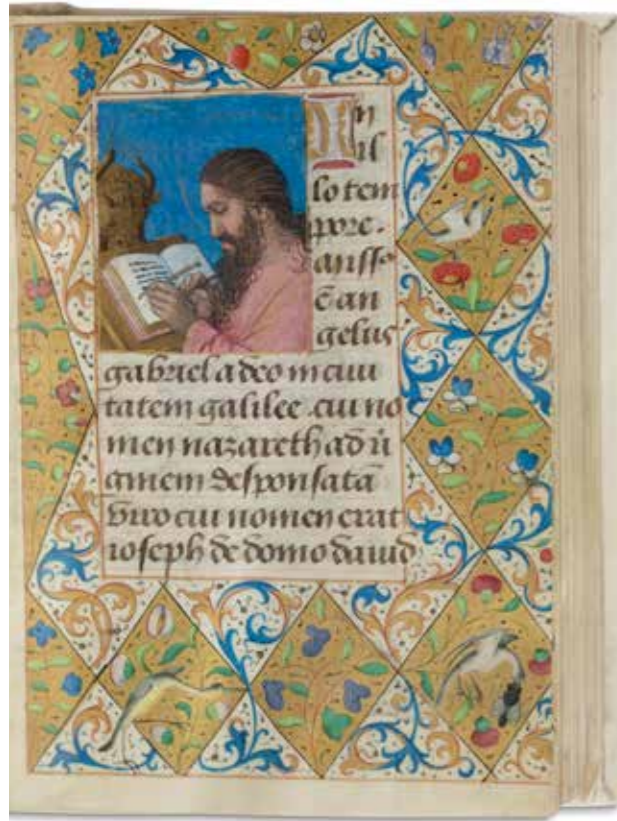 In
il
lo tem
pore.
missꝰ
ē an
gelus
gabriel a deo in ciui
tatem galilee .cui no
men nazareth ad ũ
ginem desponsatā
viro cui nomen erat
ioseph de domo dauid